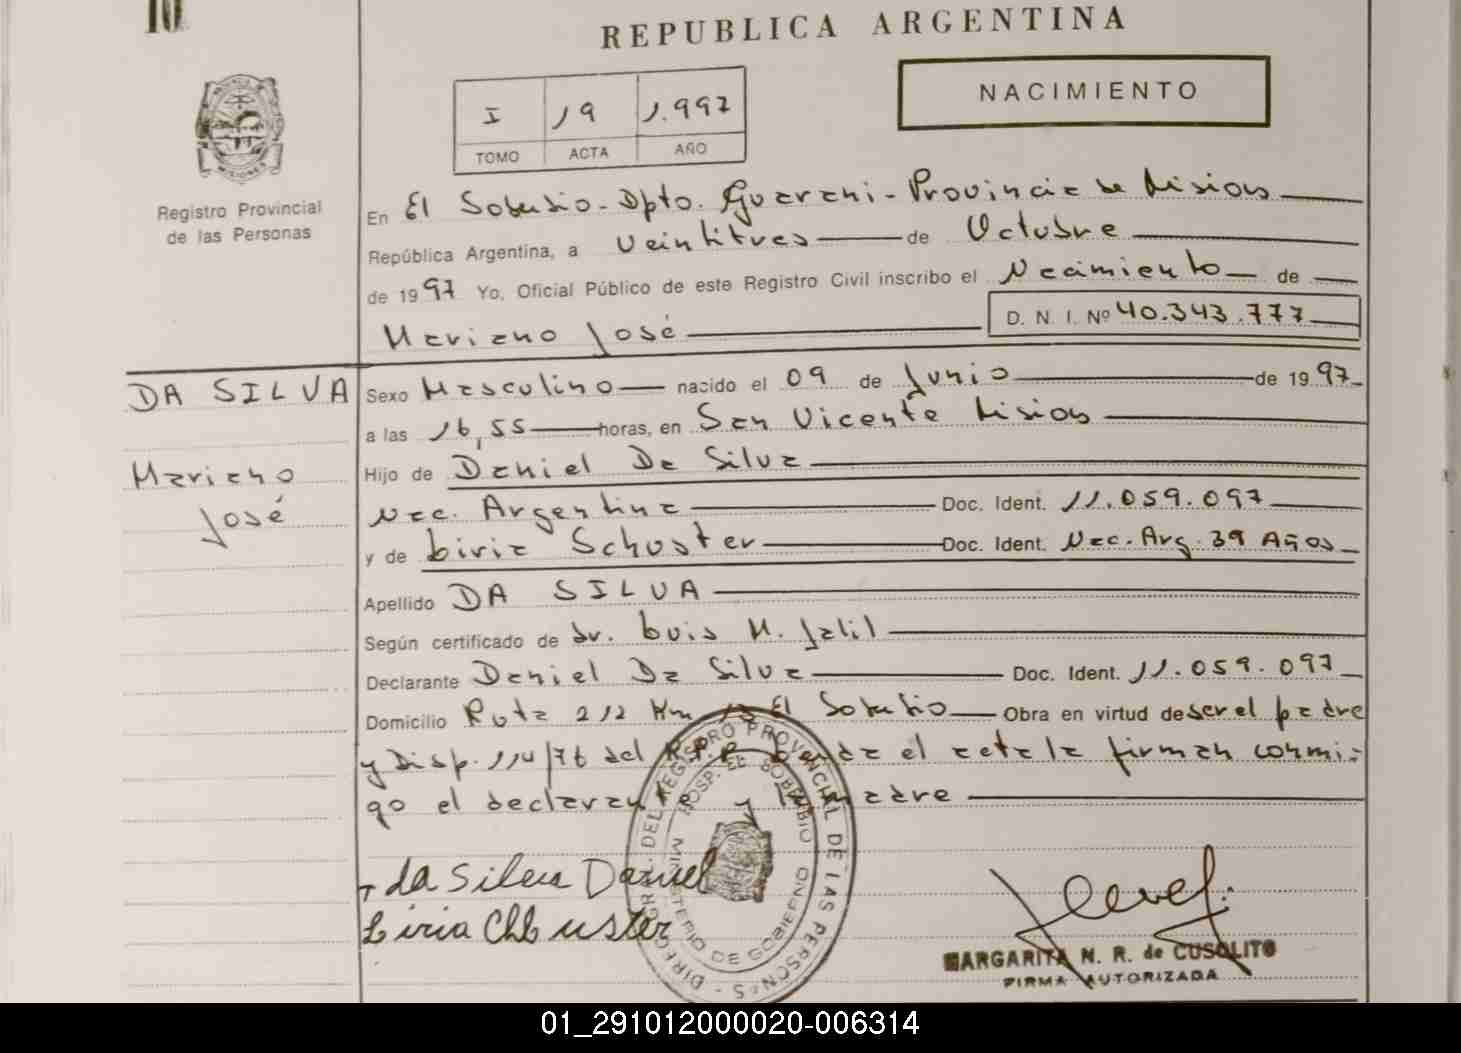 10
REPUBLICA ARGENTINA
NACIMIENTO
I 19 1.997
TOMO ACTA AÑO
MISIONES
Registro Provincial
de las Personas
En El Soberbio - Dpto. Guarani - Provincia de Misiones
República Argentina, a Veintitres de Octubre
de 1997 Yo, Oficial Público de este Registro Civil inscribo el Nacimiento de
Mariano José D. N. I. Nº 40.343.777
DA SILVA
Mariano
José
Sexo Masculino nacido el 09 de Junio de 1997
a las 16,55 horas, en San Vicente Misiones
Hijo de Daniel Da Silva
Nac. Argentina Doc. Ident. 11.059.097
y de Liria Schuster Doc. Ident. Nac. Arg. 39 Años
Apellido DA SILVA
Según certificado de Dr. Luis M. Jalil
Declarante Daniel Da Silva Doc. Ident. 11.059.097
Domicilio Ruta 212 Km 13 El Soberbio Obra en virtud de ser el padre
y Disp. 114/76 del R.P.P. el acta la firman conmi-
go el declarante y la madre
da Silva Daniel
Liria Chbuster
DIREC. GRL. DEL REGISTRO PROVINCIAL DE LAS PERSONAS
HOSP. EL SOBERBIO
MINISTERIO DE GOBIERNO
MARGARITA N. R. de CUSOLITO
FIRMA AUTORIZADA
01_291012000020-006314